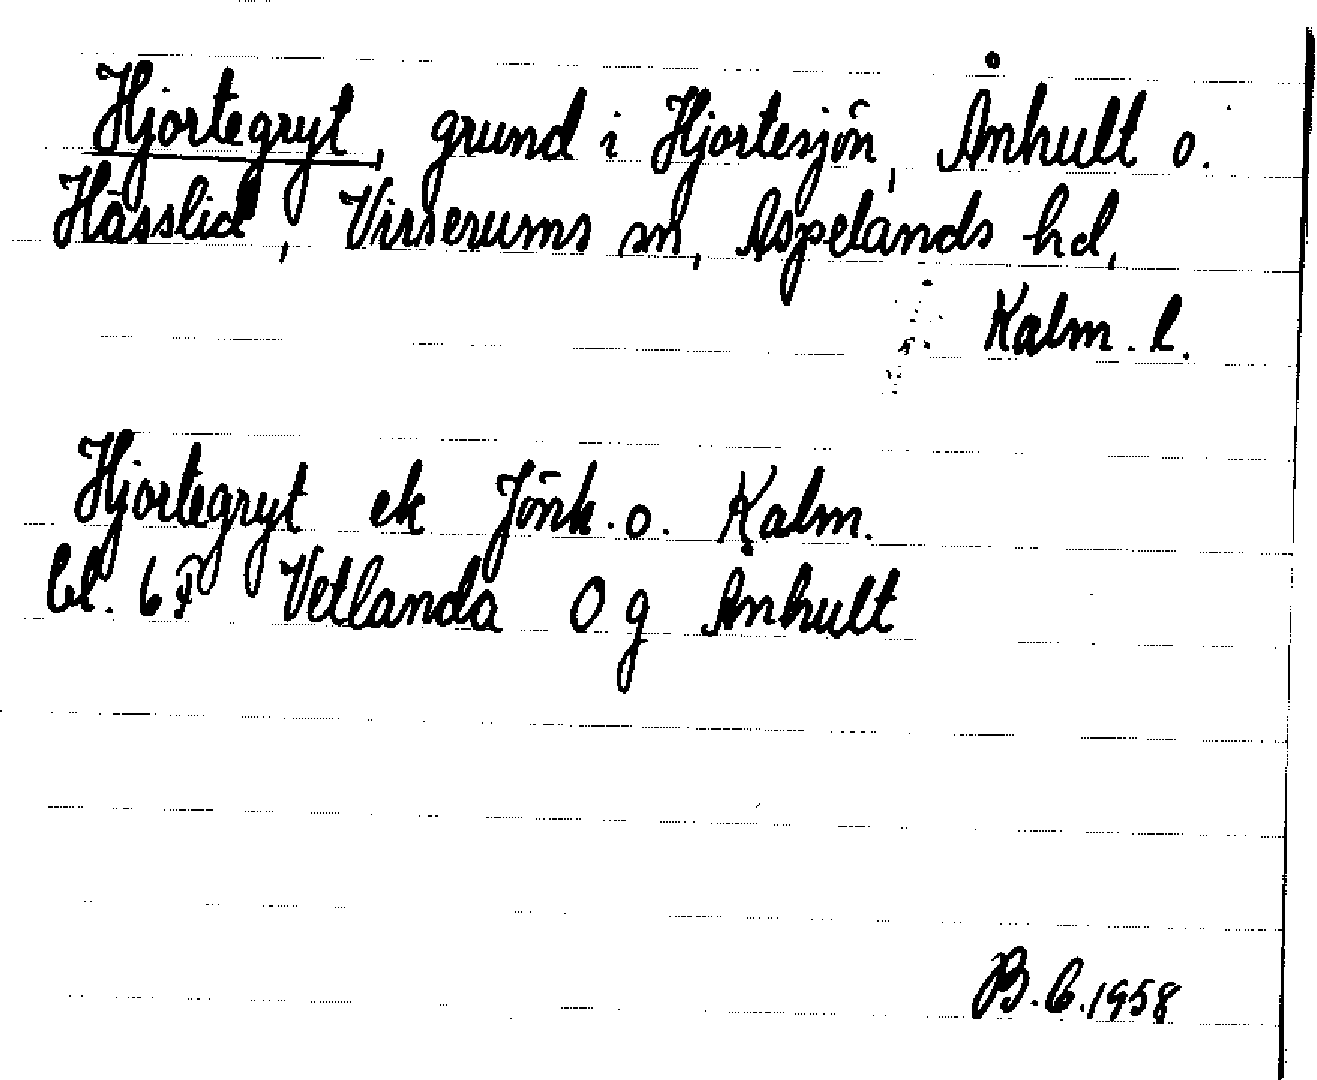 Hjortegryt, grund i Hjortesjön, Ånhult o.
Hässlid, Virserums sn, Aspelands hd,
Kalm. l.
Hjortegryt ek Jönk. o. Kalm.
bl. 6 Vetlanda Og Ånhult
B.C. 1958